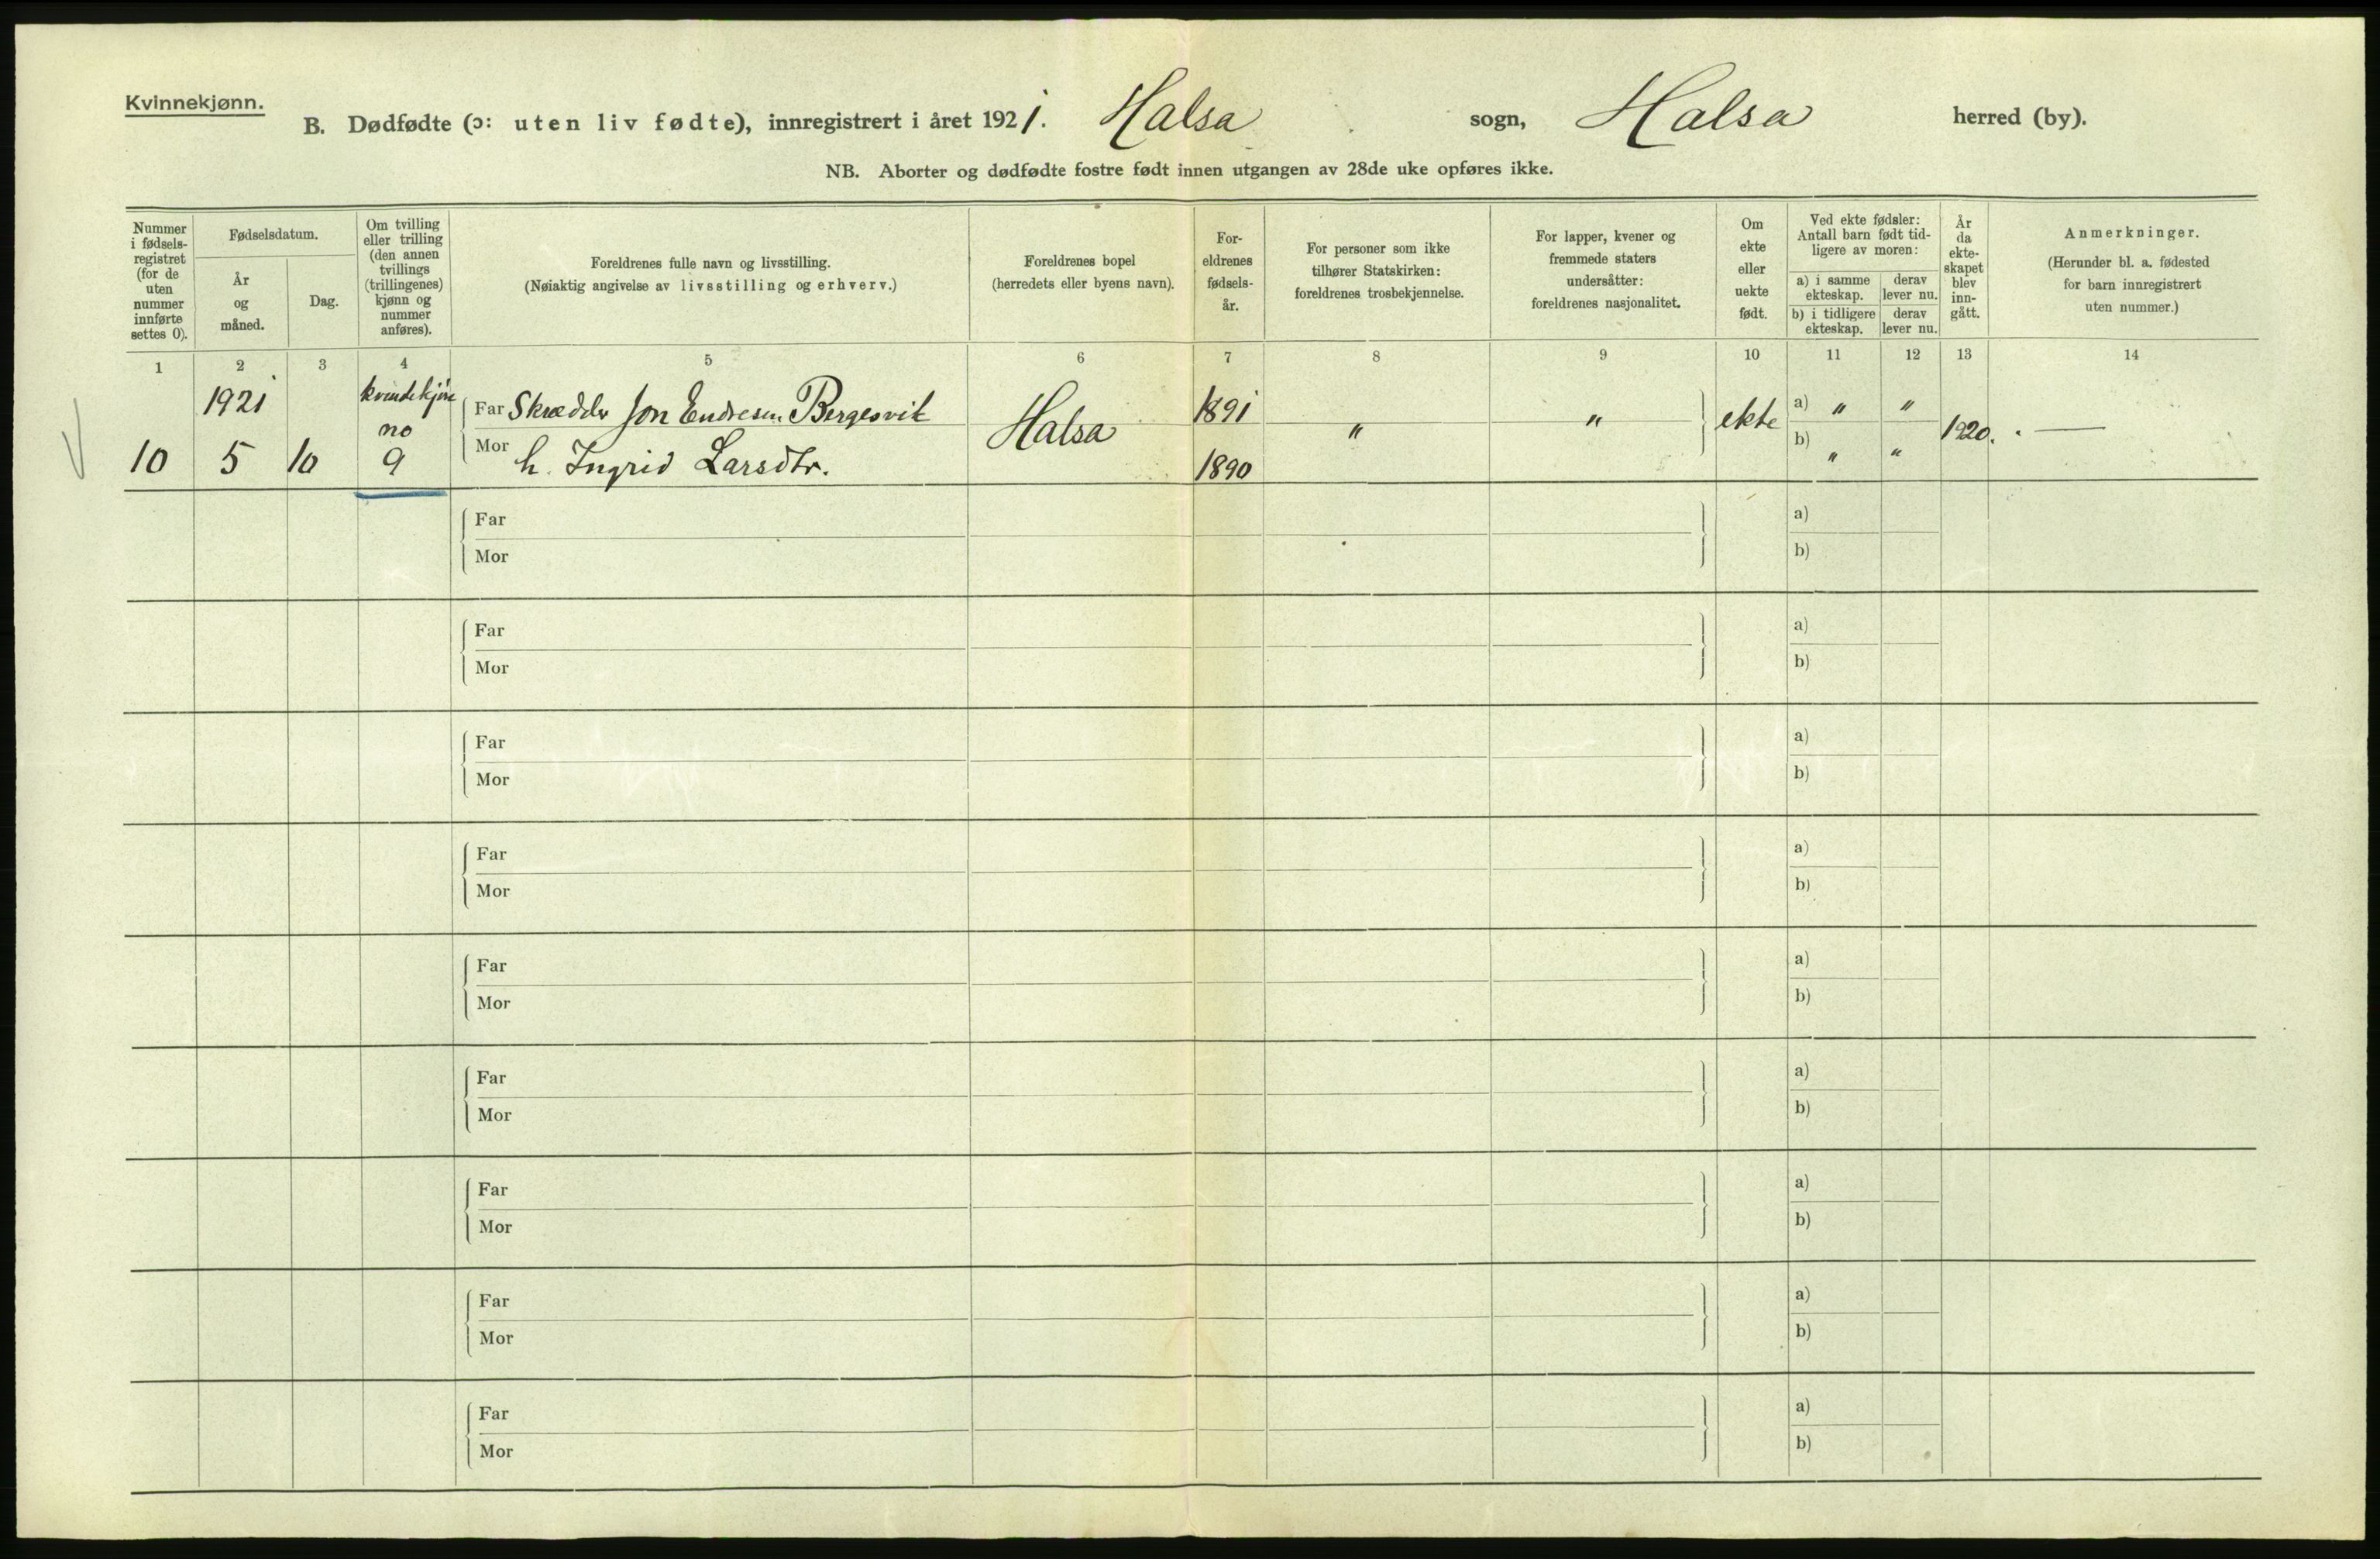 Kvinnekjønn.
B. Dødfødte (ɔ: uten liv fødte), innregistrert i året 1921. Halsa sogn, Halsa herred (by).
NB. Aborter og dødfødte fostre født innen utgangen av 28de uke opføres ikke.
Nummer
i fødsels-
registret
(for de
uten
nummer
innførte
settes 0).
Fødselsdatum.
År
og
måned.
Dag.
Om tvilling
eller trilling
(den annen
tvillings
(trillingenes)
kjønn og
nummer
anføres).
Foreldrenes fulle navn og livsstilling.
(Nøiaktig angivelse av livsstilling og erhverv.)
Foreldrenes bopel
(herredets eller byens navn).
For-
eldrenes
fødsels-
år.
For personer som ikke
tilhører Statskirken:
foreldrenes trosbekjennelse.
For lapper, kvener og
fremmede staters
undersåtter:
foreldrenes nasjonalitet.
Om
ekte
eller
uekte
født.
Ved ekte fødsler:
Antall barn født tid-
ligere av moren:
a) i samme
ekteskap.
derav
lever nu.
b) i tidligere
ekteskap.
derav
lever nu.
År
da
ekte-
skapet
blev
inn-
gått.
Anmerkninger.
(Herunder bl. a. fødested
for barn innregistrert
uten nummer.)
1 2 3 4 5 6 7 8 9 10 11 12 13 14
1921 Far Skrædder Jon Endresen Bergesvik Halsa 1891 " " ekte a) " " 1920. —
no
10 5 10 9 Mor h. Ingrid Larsdtr. 1890 b) " "
Far a)
Mor b)
Far a)
Mor b)
Far a)
Mor b)
Far a)
Mor b)
Far a)
Mor b)
Far a)
Mor b)
Far a)
Mor b)
Far a)
Mor b)
Far a)
Mor b)